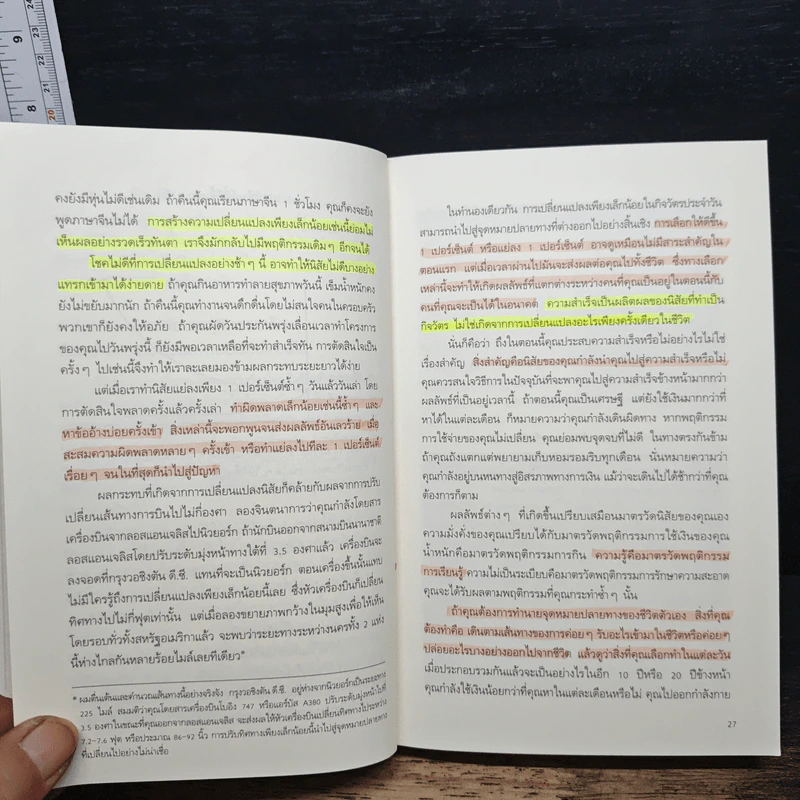 9
8
24
23
22
21
20
คงยังมีหุ่นไม่ดีเช่นเดิม ถ้าคืนนี้คุณเรียนภาษาจีน 1 ชั่วโมง คุณก็คงจะยัง
พูดภาษาจีนไม่ได้ การสร้างความเปลี่ยนแปลงเพียงเล็กน้อยเช่นนี้ย่อมไม่
เห็นผลอย่างรวดเร็วทันตา เราจึงมักกลับไปมีพฤติกรรมเดิมๆ อีกจนได้
โชคไม่ดีที่การเปลี่ยนแปลงอย่างช้าๆ นี้ อาจทำให้นิสัยไม่ดีบางอย่าง
แทรกเข้ามาได้ง่ายดาย ถ้าคุณกินอาหารทำลายสุขภาพวันนี้ เข็มน้ำหนักคง
ยังไม่ขยับมากนัก ถ้าคืนนี้คุณทำงานจนดึกดื่นโดยไม่สนใจคนในครอบครัว
พวกเขาก็ยังคงให้อภัย ถ้าคุณผัดวันประกันพรุ่งเลื่อนเวลาทำโครงการ
ของคุณไปวันพรุ่งนี้ ก็ยังมีพอเวลาเหลือที่จะทำสำเร็จทัน การตัดสินใจเป็น
ครั้งๆ ไปเช่นนี้จึงทำให้เราละเลยมองข้ามผลกระทบระยะยาวได้ง่าย
แต่เมื่อเราทำนิสัยแย่ลงเพียง 1 เปอร์เซ็นต์ซ้ำๆ วันแล้ววันเล่า โดย
การตัดสินใจพลาดครั้งแล้วครั้งเล่า ทำผิดพลาดเล็กน้อยเช่นนี้ซ้ำๆ และ
หาข้ออ้างบ่อยครั้งเข้า สิ่งเหล่านี้จะพอกพูนจนส่งผลลัพธ์อันเลวร้าย เมื่อ
สะสมความผิดพลาดหลายๆ ครั้งเข้า หรือทำแย่ลงไปทีละ 1 เปอร์เซ็นต์
เรื่อยๆ จนในที่สุดก็นำไปสู่ปัญหา
ผลกระทบที่เกิดจากการเปลี่ยนแปลงนิสัยก็คล้ายกับผลจากการปรับ
เปลี่ยนเส้นทางการบินไปไม่กี่องศา ลองจินตนาการว่าคุณกำลังโดยสาร
เครื่องบินจากลอสแอนเจลิสไปนิวยอร์ก ถ้านักบินออกจากสนามบินนานาชาติ
ลอสแอนเจลิสโดยปรับระดับมุ่งหน้าทางใต้ที่ 3.5 องศาแล้ว เครื่องบินจะ
ลงจอดที่กรุงวอชิงตัน ดี.ซี. แทนที่จะเป็นนิวยอร์ก ตอนเครื่องขึ้นนั้นแทบ
ไม่มีใครรู้ถึงการเปลี่ยนแปลงเพียงเล็กน้อยนี้เลย ซึ่งหัวเครื่องบินก็เปลี่ยน
ทิศทางไปไม่กี่ฟุตเท่านั้น แต่เมื่อลองขยายภาพกว้างในมุมสูงเพื่อให้เห็น
โดยรอบทั่วทั้งสหรัฐอเมริกาแล้ว จะพบว่าระยะทางระหว่างนครทั้ง 2 แห่ง
นี้ห่างไกลกันหลายร้อยไมล์เลยทีเดียว*
* ผมตื่นเต้นและคำนวณเส้นทางนี้อย่างจริงจัง กรุงวอชิงตัน ดี.ซี. อยู่ห่างจากนิวยอร์กเป็นระยะทาง
225 ไมล์ สมมติว่าคุณโดยสารเครื่องบินโบอิ้ง 747 หรือแอร์บัส A380 ปรับระดับมุ่งหน้าไปที่
3.5 องศาในขณะที่คุณออกจากลอสแอนเจลิส จะส่งผลให้หัวเครื่องบินเปลี่ยนทิศทางไประหว่าง
7.2-7.6 ฟุต หรือประมาณ 86-92 นิ้ว การปรับทิศทางเพียงเล็กน้อยนี้นำไปสู่จุดหมายปลายทาง
ที่เปลี่ยนไปอย่างไม่น่าเชื่อ
ในทำนองเดียวกัน การเปลี่ยนแปลงเพียงเล็กน้อยในกิจวัตรประจำวัน
สามารถนำไปสู่จุดหมายปลายทางที่ต่างออกไปอย่างสิ้นเชิง การเลือกให้ดีขึ้น
1 เปอร์เซ็นต์ หรือแย่ลง 1 เปอร์เซ็นต์ อาจดูเหมือนไม่มีสาระสำคัญใน
ตอนแรก แต่เมื่อเวลาผ่านไปมันจะส่งผลต่อคุณไปทั้งชีวิต ซึ่งทางเลือก
เหล่านี้จะทำให้เกิดผลลัพธ์ที่แตกต่างระหว่างคนที่คุณเป็นอยู่ในตอนนี้กับ
คนที่คุณจะเป็นได้ในอนาคต ความสำเร็จเป็นผลิตผลของนิสัยที่ทำเป็น
กิจวัตร ไม่ใช่เกิดจากการเปลี่ยนแปลงอะไรเพียงครั้งเดียวในชีวิต
นั่นก็คือว่า ถึงในตอนนี้คุณจะประสบความสำเร็จหรือไม่อย่างไรไม่ใช่
เรื่องสำคัญ สิ่งสำคัญคือนิสัยของคุณกำลังนำคุณไปสู่ความสำเร็จหรือไม่
คุณควรสนใจวิธีการในปัจจุบันที่จะพาคุณไปสู่ความสำเร็จข้างหน้ามากกว่า
ผลลัพธ์ที่เป็นอยู่เวลานี้ ถ้าตอนนี้คุณเป็นเศรษฐี แต่ยังใช้เงินมากกว่าที่
หาได้ในแต่ละเดือน ก็หมายความว่าคุณกำลังเดินผิดทาง หากพฤติกรรม
การใช้จ่ายของคุณไม่เปลี่ยน คุณย่อมพบจุดจบที่ไม่ดี ในทางตรงกันข้าม
ถ้าคุณถังแตกแต่พยายามเก็บหอมรอมริบทุกเดือน นั่นหมายความว่า
คุณกำลังอยู่บนหนทางสู่อิสรภาพทางการเงิน แม้ว่าจะเดินไปได้ช้ากว่าที่คุณ
ต้องการก็ตาม
ผลลัพธ์ต่างๆ ที่เกิดขึ้นเปรียบเสมือนมาตรวัดนิสัยของคุณเอง
ความมั่งคั่งของคุณเปรียบได้กับมาตรวัดพฤติกรรมการใช้เงินของคุณ
น้ำหนักคือมาตรวัดพฤติกรรมการกิน ความรู้คือมาตรวัดพฤติกรรม
การเรียนรู้ ความไม่เป็นระเบียบคือมาตรวัดพฤติกรรมการรักษาความสะอาด
คุณจะได้รับผลตามพฤติกรรมที่คุณกระทำซ้ำๆ นั้น
ถ้าคุณต้องการทำนายจุดหมายปลายทางของชีวิตตัวเอง สิ่งที่คุณ
ต้องทำคือ เดินตามเส้นทางของการค่อยๆ รับอะไรเข้ามาในชีวิตหรือค่อยๆ
ปล่อยอะไรบางอย่างออกไปจากชีวิต แล้วดูว่าสิ่งที่คุณเลือกทำในแต่ละวัน
เมื่อประกอบรวมกันแล้วจะเป็นอย่างไรในอีก 10 ปีหรือ 20 ปีข้างหน้า
คุณกำลังใช้เงินน้อยกว่าที่คุณหาในแต่ละเดือนหรือไม่ คุณไปออกกำลังกาย
27